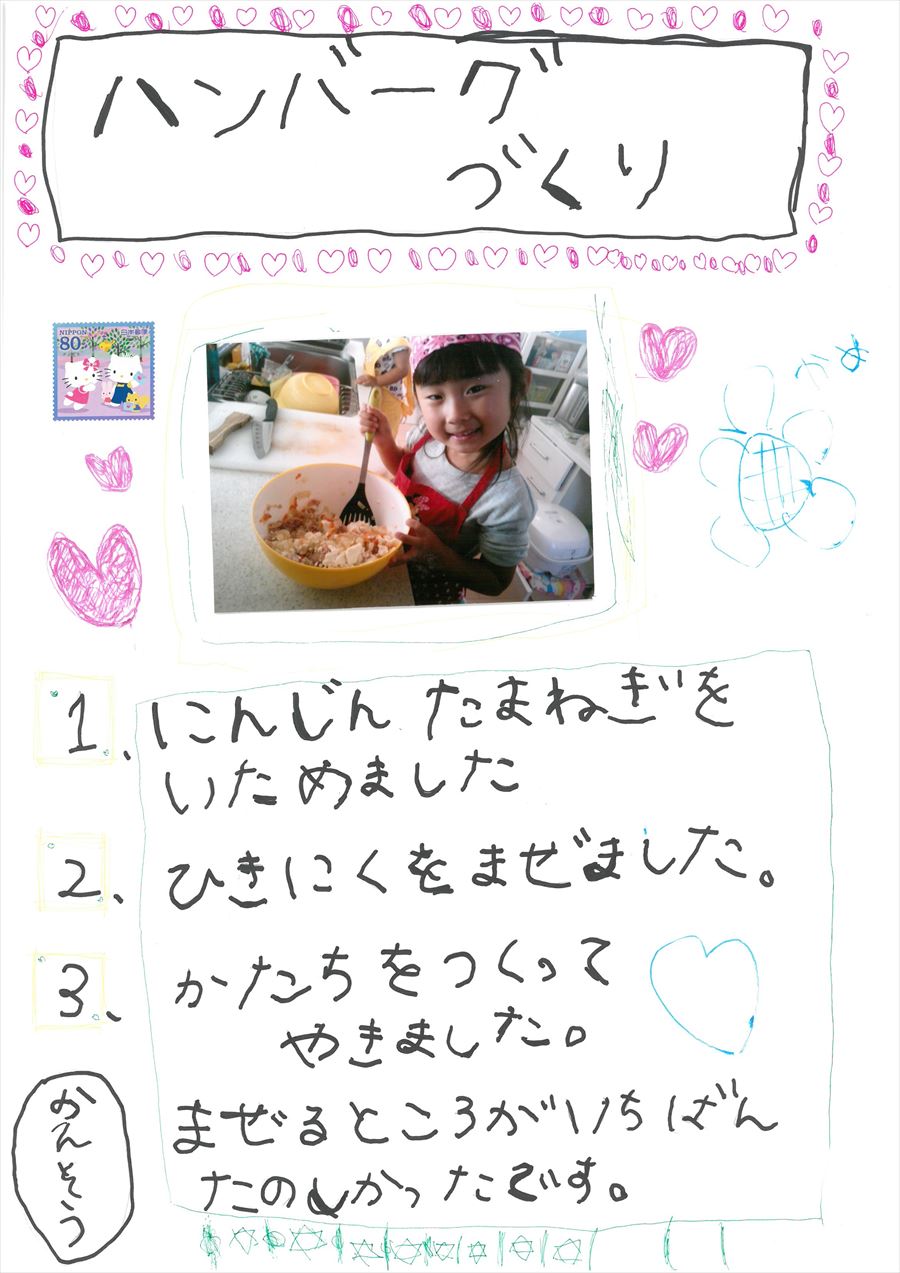 ハンバーグ
づくり
NIPPON 日本郵便
80
かめ
1、にんじん たまねぎを
いためました
2、ひきにくをまぜました。
3、かたちをつくって
やきました。
かんそう
まぜるところがいちばん
たのしかったです。